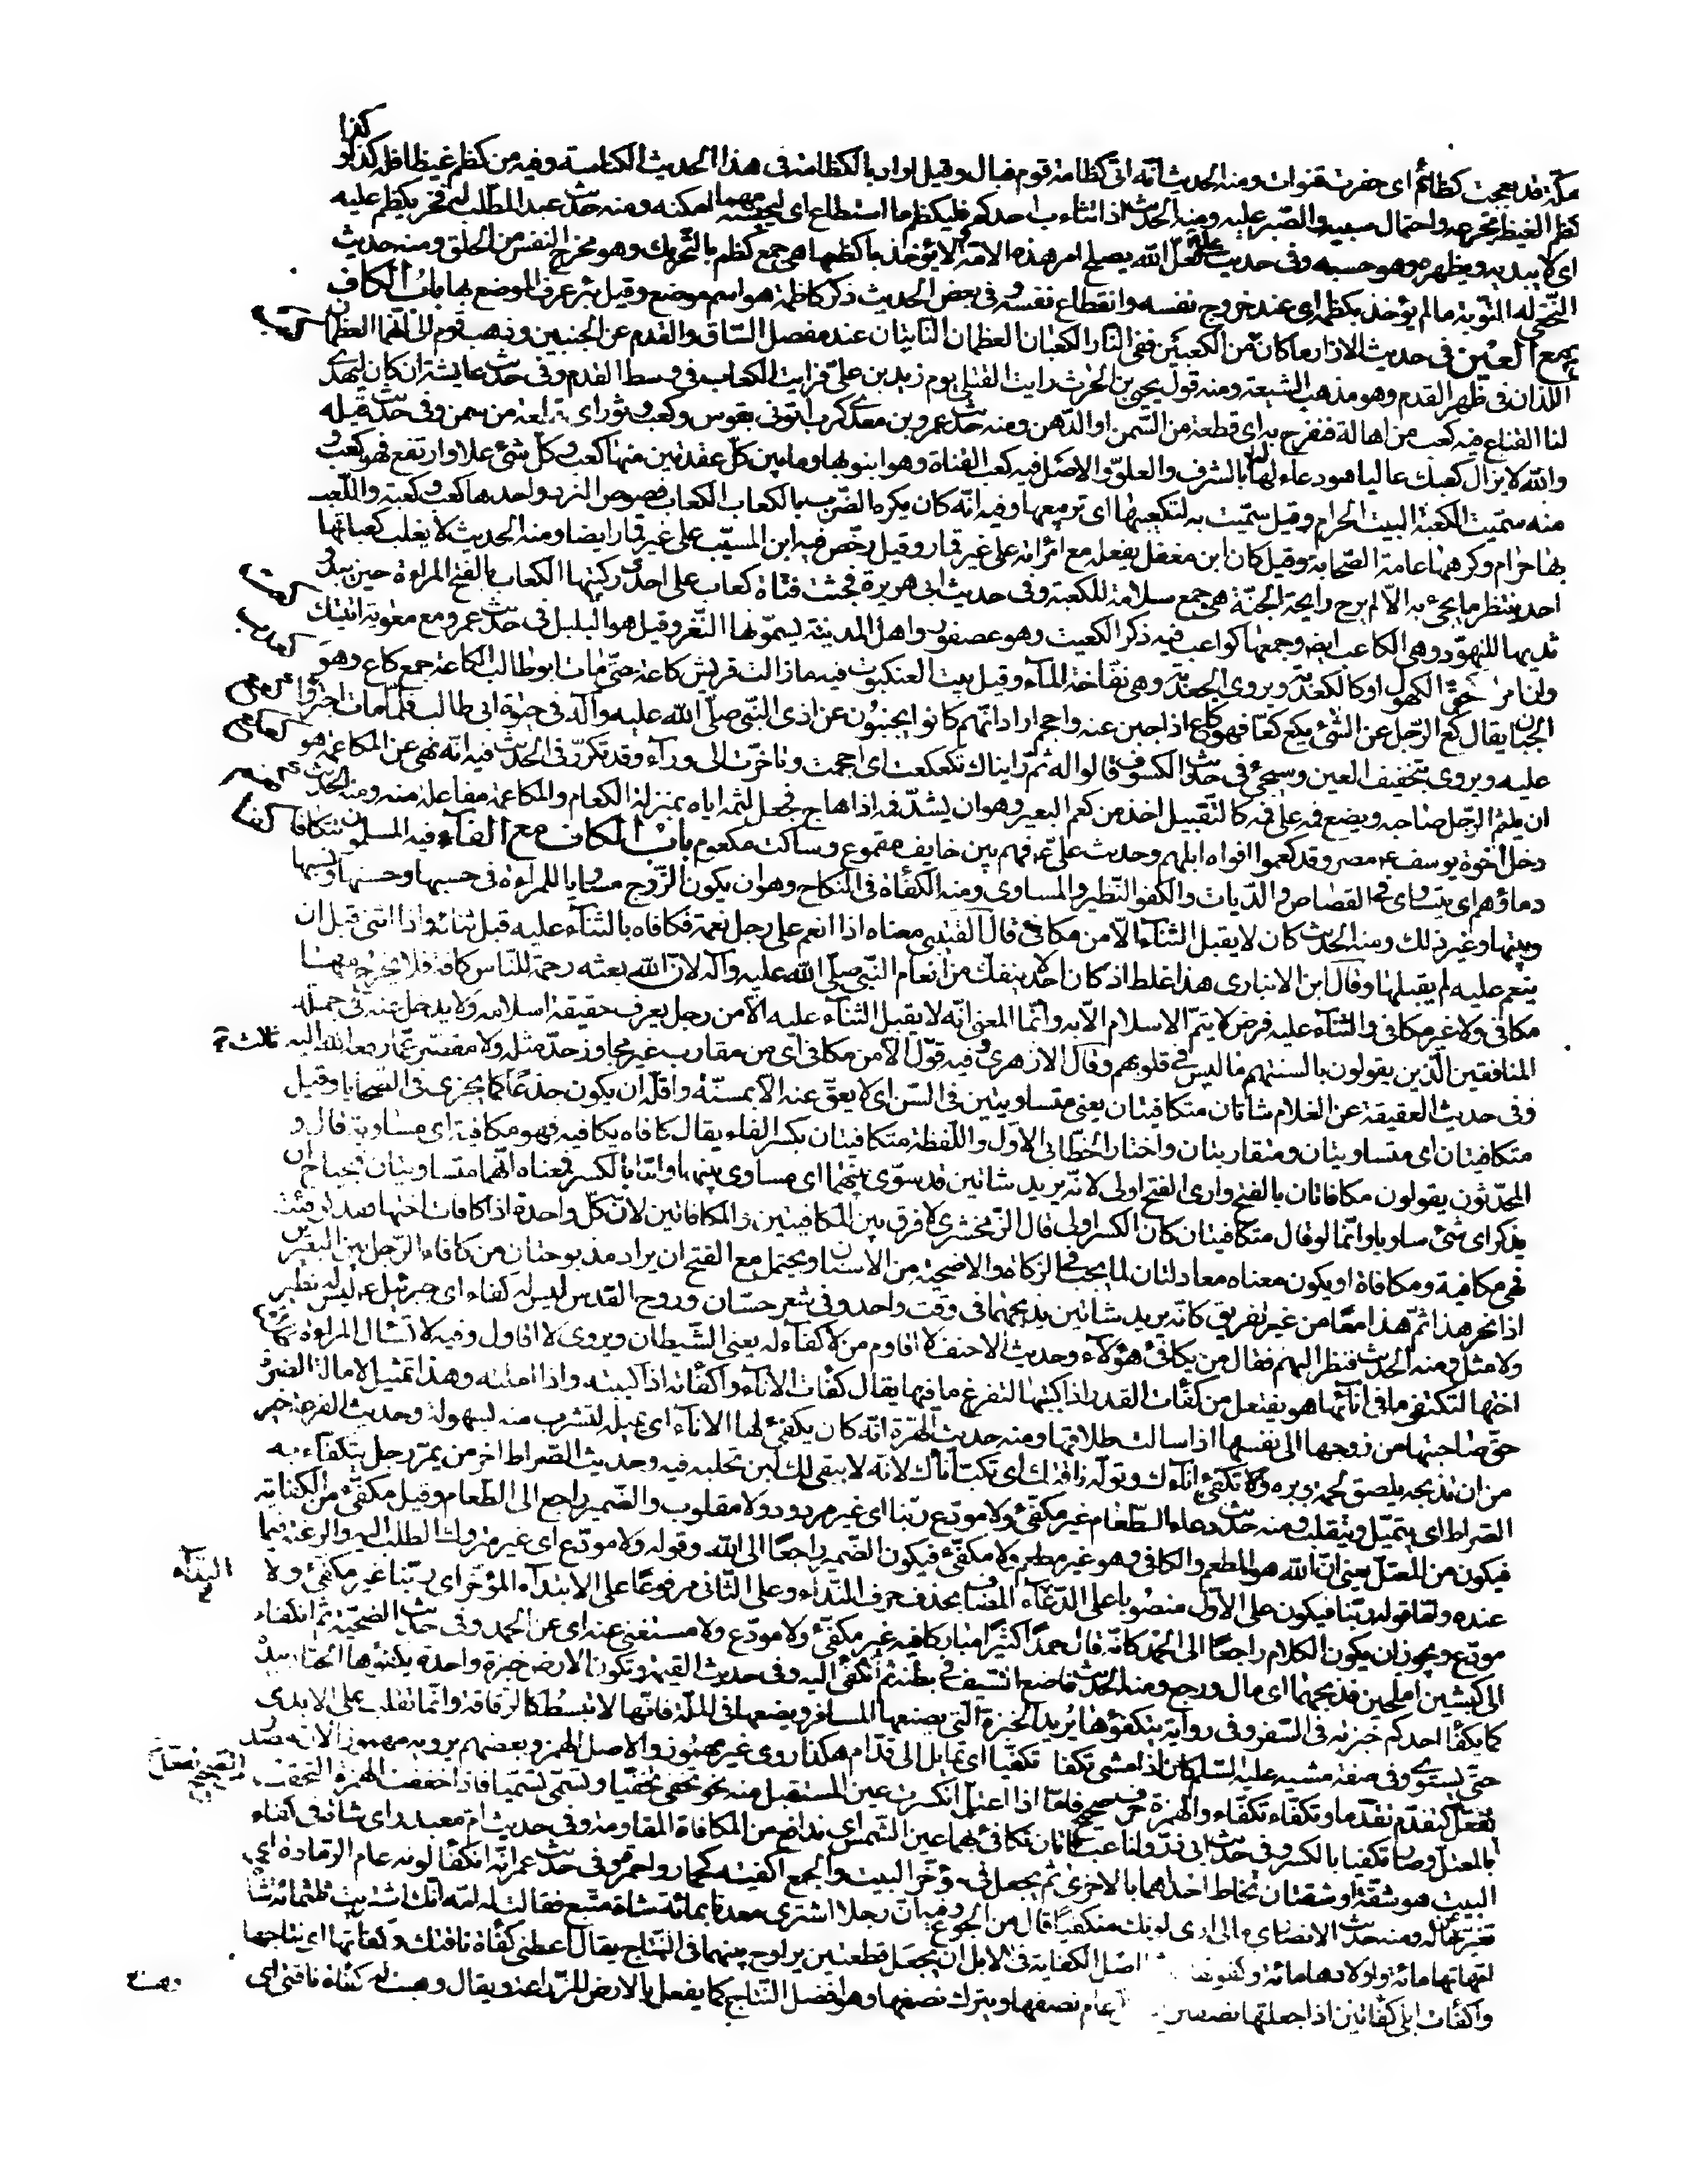 كفرا
مكة قد بعجت كظائم اى حفرت قنوات ومنه الحديث انه اتى كظامة قوم فبال وقيل اراد بالكظامة فى هذا الحديث الكناسة وفيه من كظم غيظا فله كذا و
كظم الغيظ تجرعه واحتمال سببه والصبر عليه ومنه الحديث اذا تثاءب احدكم فليكظم ما استطاع اى ليحبسه مهما امكنه ومنه حديث عبد المطلب له فخر يكظم عليه
اى لا يبديه ويظهره وهو حسبه وفى حديث على لعل الله يصلح امر هذه الامة ولا يؤخذ باكظامها هى جمع كظم بالتحريك وهو مخرج النفس من الحلق ومنه حديث
النخعى له التوبة ما لم يؤخذ بكظمه اى عند خروج نفسه وانقطاع نفسه وفى بعض الحديث ذكر كاظمة هو اسم موضع وقيل بئر عرف الموضع بها باب الكاف
مع العين فى حديث الازار ما كان من الكعبين ففى النار الكعبان العظمان الناتيان عند مفصل الساق والقدم عن الجنبين وذهب قوم الى انهما العظمان
اللذان فى ظهر القدم وهو مذهب الشيعة ومنه قول يحيى بن الحرث رايت القتلى يوم زيد بن على فرايت الكعاب فى وسط القدم وفى حديث عايشة ان كان ليهدى
لنا القناع فيه كعب من اهالة فنفرح به اى قطعة من السمن او الدهن ومنه حديث عمرو بن معدى كرب اتونى بقوس وكعب وثور اى قطعة من سمن وفى حديث قيلة
والله لا يزال كعبك عاليا هو دعاء لها بالشرف والعلو والاصل فيه كعب القناة وهو انبوبها وما بين كل عقدتين منها كعب وكل شئ علا وارتفع فهو كعب و
منه سميت الكعبة البيت الحرام وقيل سميت به لتكعيبها اى تربيعها وفيه انه كان يكره الضرب بالكعاب الكعاب فصوص النرد واحدها كعب وكعبة واللعب
بها حرام وكرهها عامة الصحابة وقيل كان ابن مغفل يفعله مع امراته على غير قمار وقيل رخص فيه ابن المسيب على غير قمار ايضا ومنه الحديث لا يقلب كعباتها
احد ينتظر ما يجئ به الا لم يرح رايحة الجنة هى جمع سلامة للكعبة وفى حديث ابى هريرة فجثت فتاة كعاب على احدى ركبتيها الكعاب بالفتح المراءة حين يبدو
ثديها للنهود وهى الكاعب ايضا وجمعها كواعب فيه ذكر الكعيت وهو عصفور واهل المدينة يسمونها النغر وقيل هو البلبل فى حديث عمرو مع معوية اتيتك
وان امرك كحق الكهول او كالكعدبة ويروى الجعدبة وهى نفاخة الماء وقيل بيت العنكبوت فيه ما زالت قريش كاعة حتى مات ابو طالب الكاعة جمع كاع وهو
الجبان يقال كع الرجل عن الشئ يكع كعا فهو كاع اذا جبن عنه واحجم اراد انهم كانوا يجبنون عن اذى النبى صلى الله عليه وآله فى حيوة ابى طالب فلما مات اجترؤا
عليه ويروى بتخفيف العين وسيجئ فى حديث الكسوف قالوا له ثم رايناك تكعكعت اى احجمت وتاخرت الى وراء وقد تكرر فى الحديث فيه انه نهى عن المكاعمة هو
ان يلثم الرجل صاحبه ويضع فمه على فمه كالتقبيل اخذ من كعم البعير وهو ان يشد فمه اذا هاج فجعل لثمه اياه بمنزلة الكعام والمكاعمة مفاعلة منه ومنه الحديث
دخل اخوة يوسف ع مصر وقد كعموا افواه ابلهم وحديث على ع فهم بين خايف مقموع وساكت مكعوم باب الكاف مع الفاء فيه المسلمون تتكافا
دماؤهم اى يتساوى فى القصاص والديات والكفو النظير والمساوى ومنه الكفاءة فى النكاح وهو ان يكون الزوج مساويا للمراءة فى حسبها وحسنها ونسبها
وبيتها وغير ذلك ومنه الحديث كان لا يقبل الثناء الا من مكافئ قال القتيبى معناه اذا انعم على رجل نعمة فكافاه بالثناء عليه قبل ثنائه واذا اثنى قبل ان
ينعم عليه لم يقبلها وقال ابن الانبارى هذا غلط اذ كان احد لا ينفك من انعام النبى صلى الله عليه وآله لان الله بعثه رحمة للناس كافة فلا يخرج منها
مكافى ولا غير مكافى والثناء عليه فرض لا يتم الاسلام الا به وانما المعنى انه لا يقبل الثناء عليه الا من رجل يعرف حقيقة اسلامه ولا يدخل عنده فى جملة
المنافقين الذين يقولون بالسنتهم ما ليس فى قلوبهم وقال الازهرى وفيه قول الا من مكافى اى من مقارب غير مجاوز حد مثله ولا مقصر عما رفعه الله اليه
وفى حديث العقيقة عن الغلام شاتان متكافيتان يعنى متساويتين فى السن اى لا يعق عنه الا بمسنة واقله ان يكون جذعا كما يجزى فى الضحايا وقيل
متكافيتان اى متساويتان ومتقاربتان واختار الخطابى الاول واللفظة متكافيتان بكسر الفاء يقال كافاه يكافيه فهو مكافيه اى مساويه قال و
المحدثون يقولون مكافاتان بالفتح وارى الفتح اولى لانه يريد شاتين قد سوى بينهما اى مساوى بينهما واما بالكسر فمعناه انهما متساويتان فيحتاج ان
يذكر اى شئ ساويا وانما لو قال متكافيتان كان الكسر اولى قال الزمخشرى لا فرق بين المكافيتين والمكافاتين لان كل واحدة اذا كافات اختها فقد كوفئت
فهى مكافية ومكافاة او يكون معناه معادلتان لما يجب فى الزكاة والاضحية من الاسنان ويحتمل مع الفتح ان يراد مذبوحتان من كافاء الرجل بين البعيرين
اذا نحر هذا ثم هذا معا من غير تفريق كانه يريد شاتين يذبحهما فى وقت واحد وفى شعر حسان وروح القدس ليس له كفاء اى جبرئيل ع ليس له نظير
ولا مثل ومنه الحديث فنظر اليهم فقال من يكافئ هؤلاء وحديث الاحنف لا اقاوم من لا كفاء له يعنى الشيطان ويروى لا اقاول وفيه لا تسال المراءة طلاق
اختها لتكتفئ ما فى انائها هو يفتعل من كفات القدر اذا كببتها لتفرغ ما فيها يقال كفات الاناء واكفاته اذا كببته واذا املته وهذا تمثيل لامالة الضرة
حق صاحبتها من زوجها الى نفسها اذا سالت طلاقها ومنه حديث الهرة انه كان يكفئ لها الاناء اى يميله لتشرب منه بسهولة وحديث الفرعة خير
من ان تذبحه يلصق لحمه بوبره ولا تكفئ اناءك وتوله ناقتك اى تكب اناك لانه لا يبقى لك لبن تحلبه فيه وحديث الصراط اخر من يمر رجل يتكفاء به
الصراط اى يتميل ويتقلب ومنه حديث دعاء الطعام غير مكفئ ولا مودع ربنا اى غير مردود ولا مقلوب والضمير راجع الى الطعام وقيل مكفئ من الكفاية
فيكون من المعتل يعنى ان الله هو المطعم والكافى وهو غير مطعم ولا مكفئ فيكون الضمير راجعا الى الله وقوله ولا مودع اى غير متروك الطلب اليه والرغبة فيما
عنده واما قوله ربنا فيكون على الاول منصوبا على الدعاء المضاف بحذف حرف النداء وعلى الثانى مرفوعا على الابتداء المؤخر اى ربنا غير مكفئ ولا
مودع ويجوز ان يكون الكلام راجعا الى الحمد كانه قال حمدا كثيرا مباركا فيه غير مكفئ ولا مودع ولا مستغنى عنه اى عن الحمد وفى حديث الضحية ثم انكفاء
الى كبشين املحين فذبحهما اى مال ورجع ومنه الحديث فاضع السيف فى بطنه ثم انكفئ اليه وفى حديث القيمة وتكون الارض خبزة واحدة يكفؤها الجبار بيده
كما يكفأ احدكم خبزته فى السفر وفى رواية يتكفؤها يريد الخبزة التى يصنعها المسافر ويضعها فى الملة فانها لا تبسط كالرقاقة وانما تقلب على الايدى
حتى يستوى وفى صفة مشيه عليه السلم كان اذا مشى تكفا تكفيا اى تمايل الى قدام هكذا روى غير مهموز والاصل الهمز وبعضهم يرويه مهموزا لانه مصدر
تفعل كتقدم تقدما وتكفاء تكفاء والهمزة حرف صحيح فاما اذا اعتل انكسرت عين المستقبل منه نحو تخفى تخفيا وتسمى تسميا فاذا خففت الهمزة التحقت
بالمعتل وصار تكفيا بالكسر وفى حديث ابى ذر ولنا عباءتان نكافئ بهما عين الشمس اى ندافع من المكافاة المقاومة وفى حديث ام معبد راى شاة فى كفاء
البيت هو شقة او شقتان تخاط احداهما بالاخرى ثم يجعل فى مؤخر البيت والجمع اكفية كحمار واحمرة وفى حديث عمر انه انكفأ لونه عام الرمادة اى
تغير عن حاله ومنه حديث الانصارى ما لى ارى لونك منكفيا قال من الجوع وفيه ان رجلا اشترى معدنا بمائة شاة متبع فقالت له امه انك اشتريت ثلثمائة شاة
امهاتها مائة واولادها مائة وكفوتها اصل الكفاية فى الابل ان يجعل قطعتين يراوح بينهما فى النتاج يقال اعطنى كفاة ناقتك وكفاتها اى نتاجها
واكفات ابلى كفاتين اذا جعلتها نصفين عام نصفها ويترك نصفها وهو افضل النتاج كما يفعل بالارض للزراعة ويقال وهبت له كفاة ناقتى اى